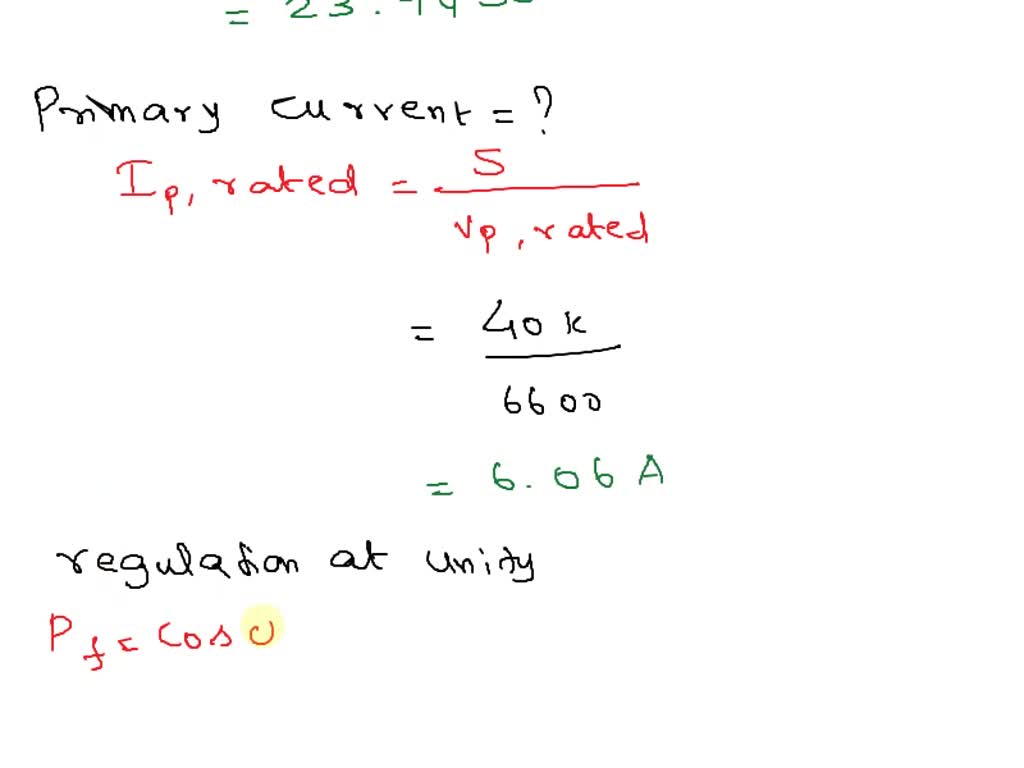 Primary current = ?
Ip, rated = S / Vp, rated
= 40 k / 6600
= 6.06 A
regulation at unity
Pf = cos